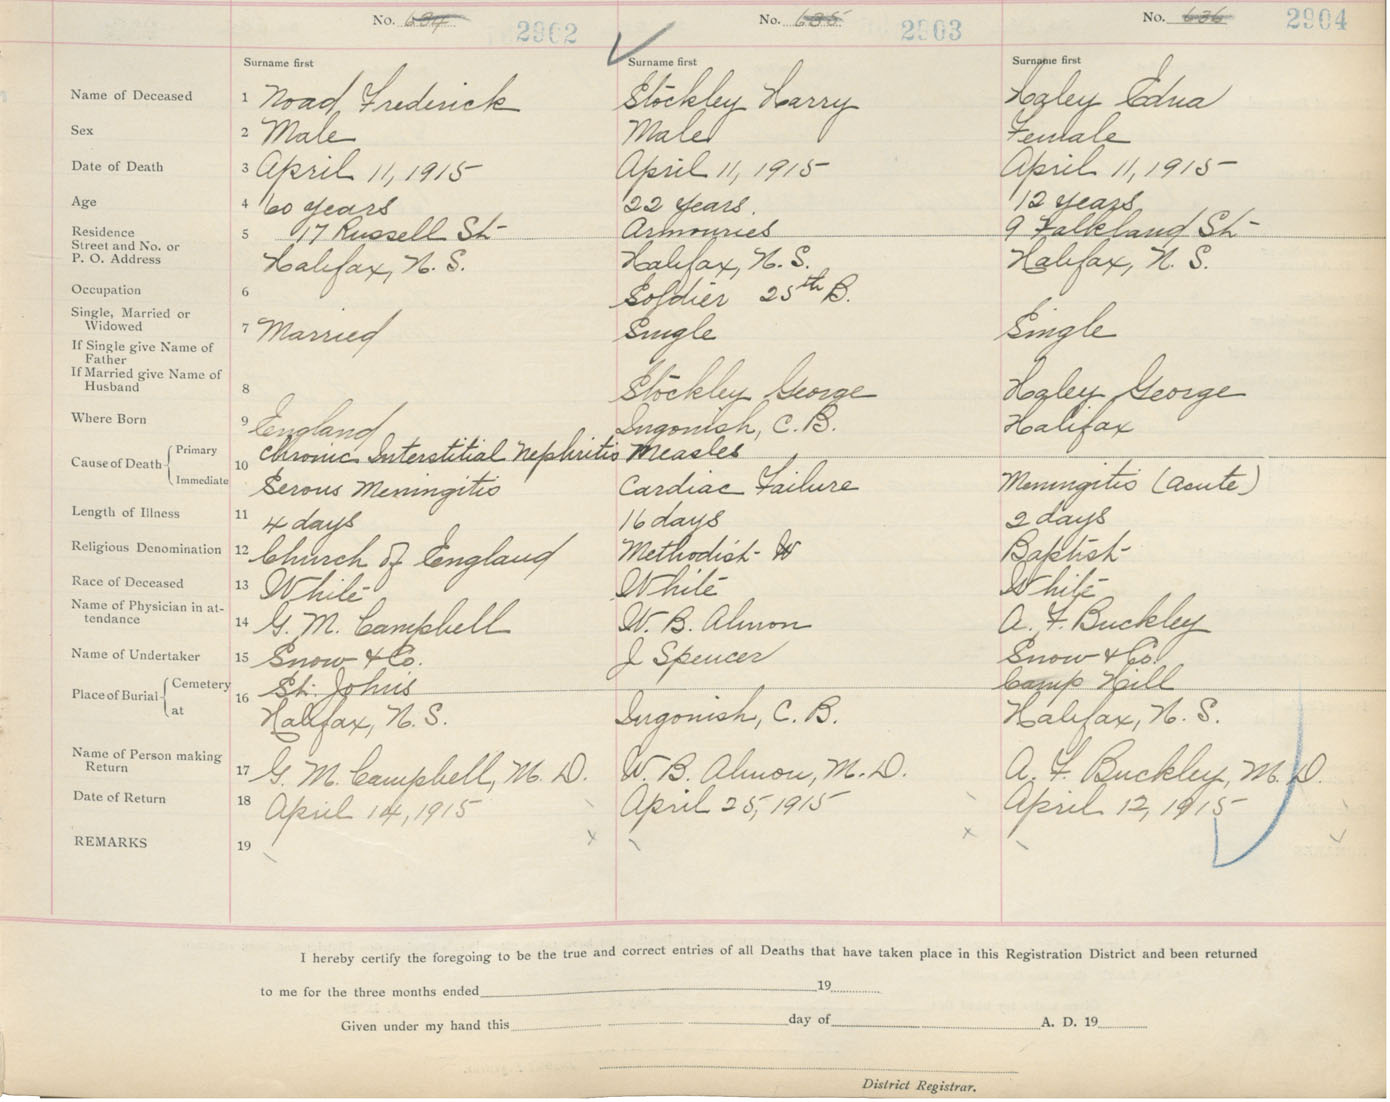 No. 634 2902 No. 635 2903 No. 636 2904
Surname first Surname first Surname first
Name of Deceased 1 Noad, Frederick Stockley Harry Haley Edna
Sex 2 Male Male Female
Date of Death 3 April 11, 1915 April 11, 1915 April 11, 1915
Age 4 60 years 22 years. 12 years
Residence 5 17 Russell St Armouries 9 Falkland St
Street and No. or
P. O. Address Halifax, N. S. Halifax, N. S. Halifax, N. S.
Occupation 6 Soldier 25th B.
Single, Married or
Widowed 7 Married Single Single
If Single give Name of
Father
If Married give Name of
Husband 8 Stockley George Haley George
Where Born 9 England Ingonish, C. B. Halifax
Cause of Death Primary 10 Chronic Interstitial Nephritis Measles
Immediate Serous Meningitis Cardiac Failure Meningitis (acute)
Length of Illness 11 4 days 16 days 2 days
Religious Denomination 12 Church of England Methodist W Baptist
Race of Deceased 13 White White White
Name of Physician in at-
tendance 14 G. M. Campbell W. B. Almon A. F. Buckley
Name of Undertaker 15 Snow & Co. J Spencer Snow & Co.
Place of Burial Cemetery 16 St. John's Camp Hill
at Halifax, N. S. Ingonish, C. B. Halifax, N. S.
Name of Person making
Return 17 G. M. Campbell, M. D. W. B. Almon, M. D. A. F. Buckley, M. D.
Date of Return 18 April 14, 1915 April 25, 1915 April 12, 1915
REMARKS 19
I hereby certify the foregoing to be the true and correct entries of all Deaths that have taken place in this Registration District and been returned
to me for the three months ended 19
Given under my hand this day of A. D. 19
District Registrar.